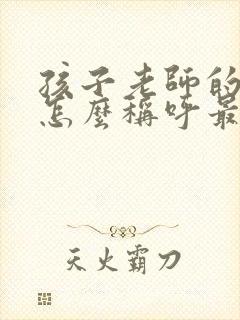 孩子老師的
怎麼稱呼最
天火霸刀